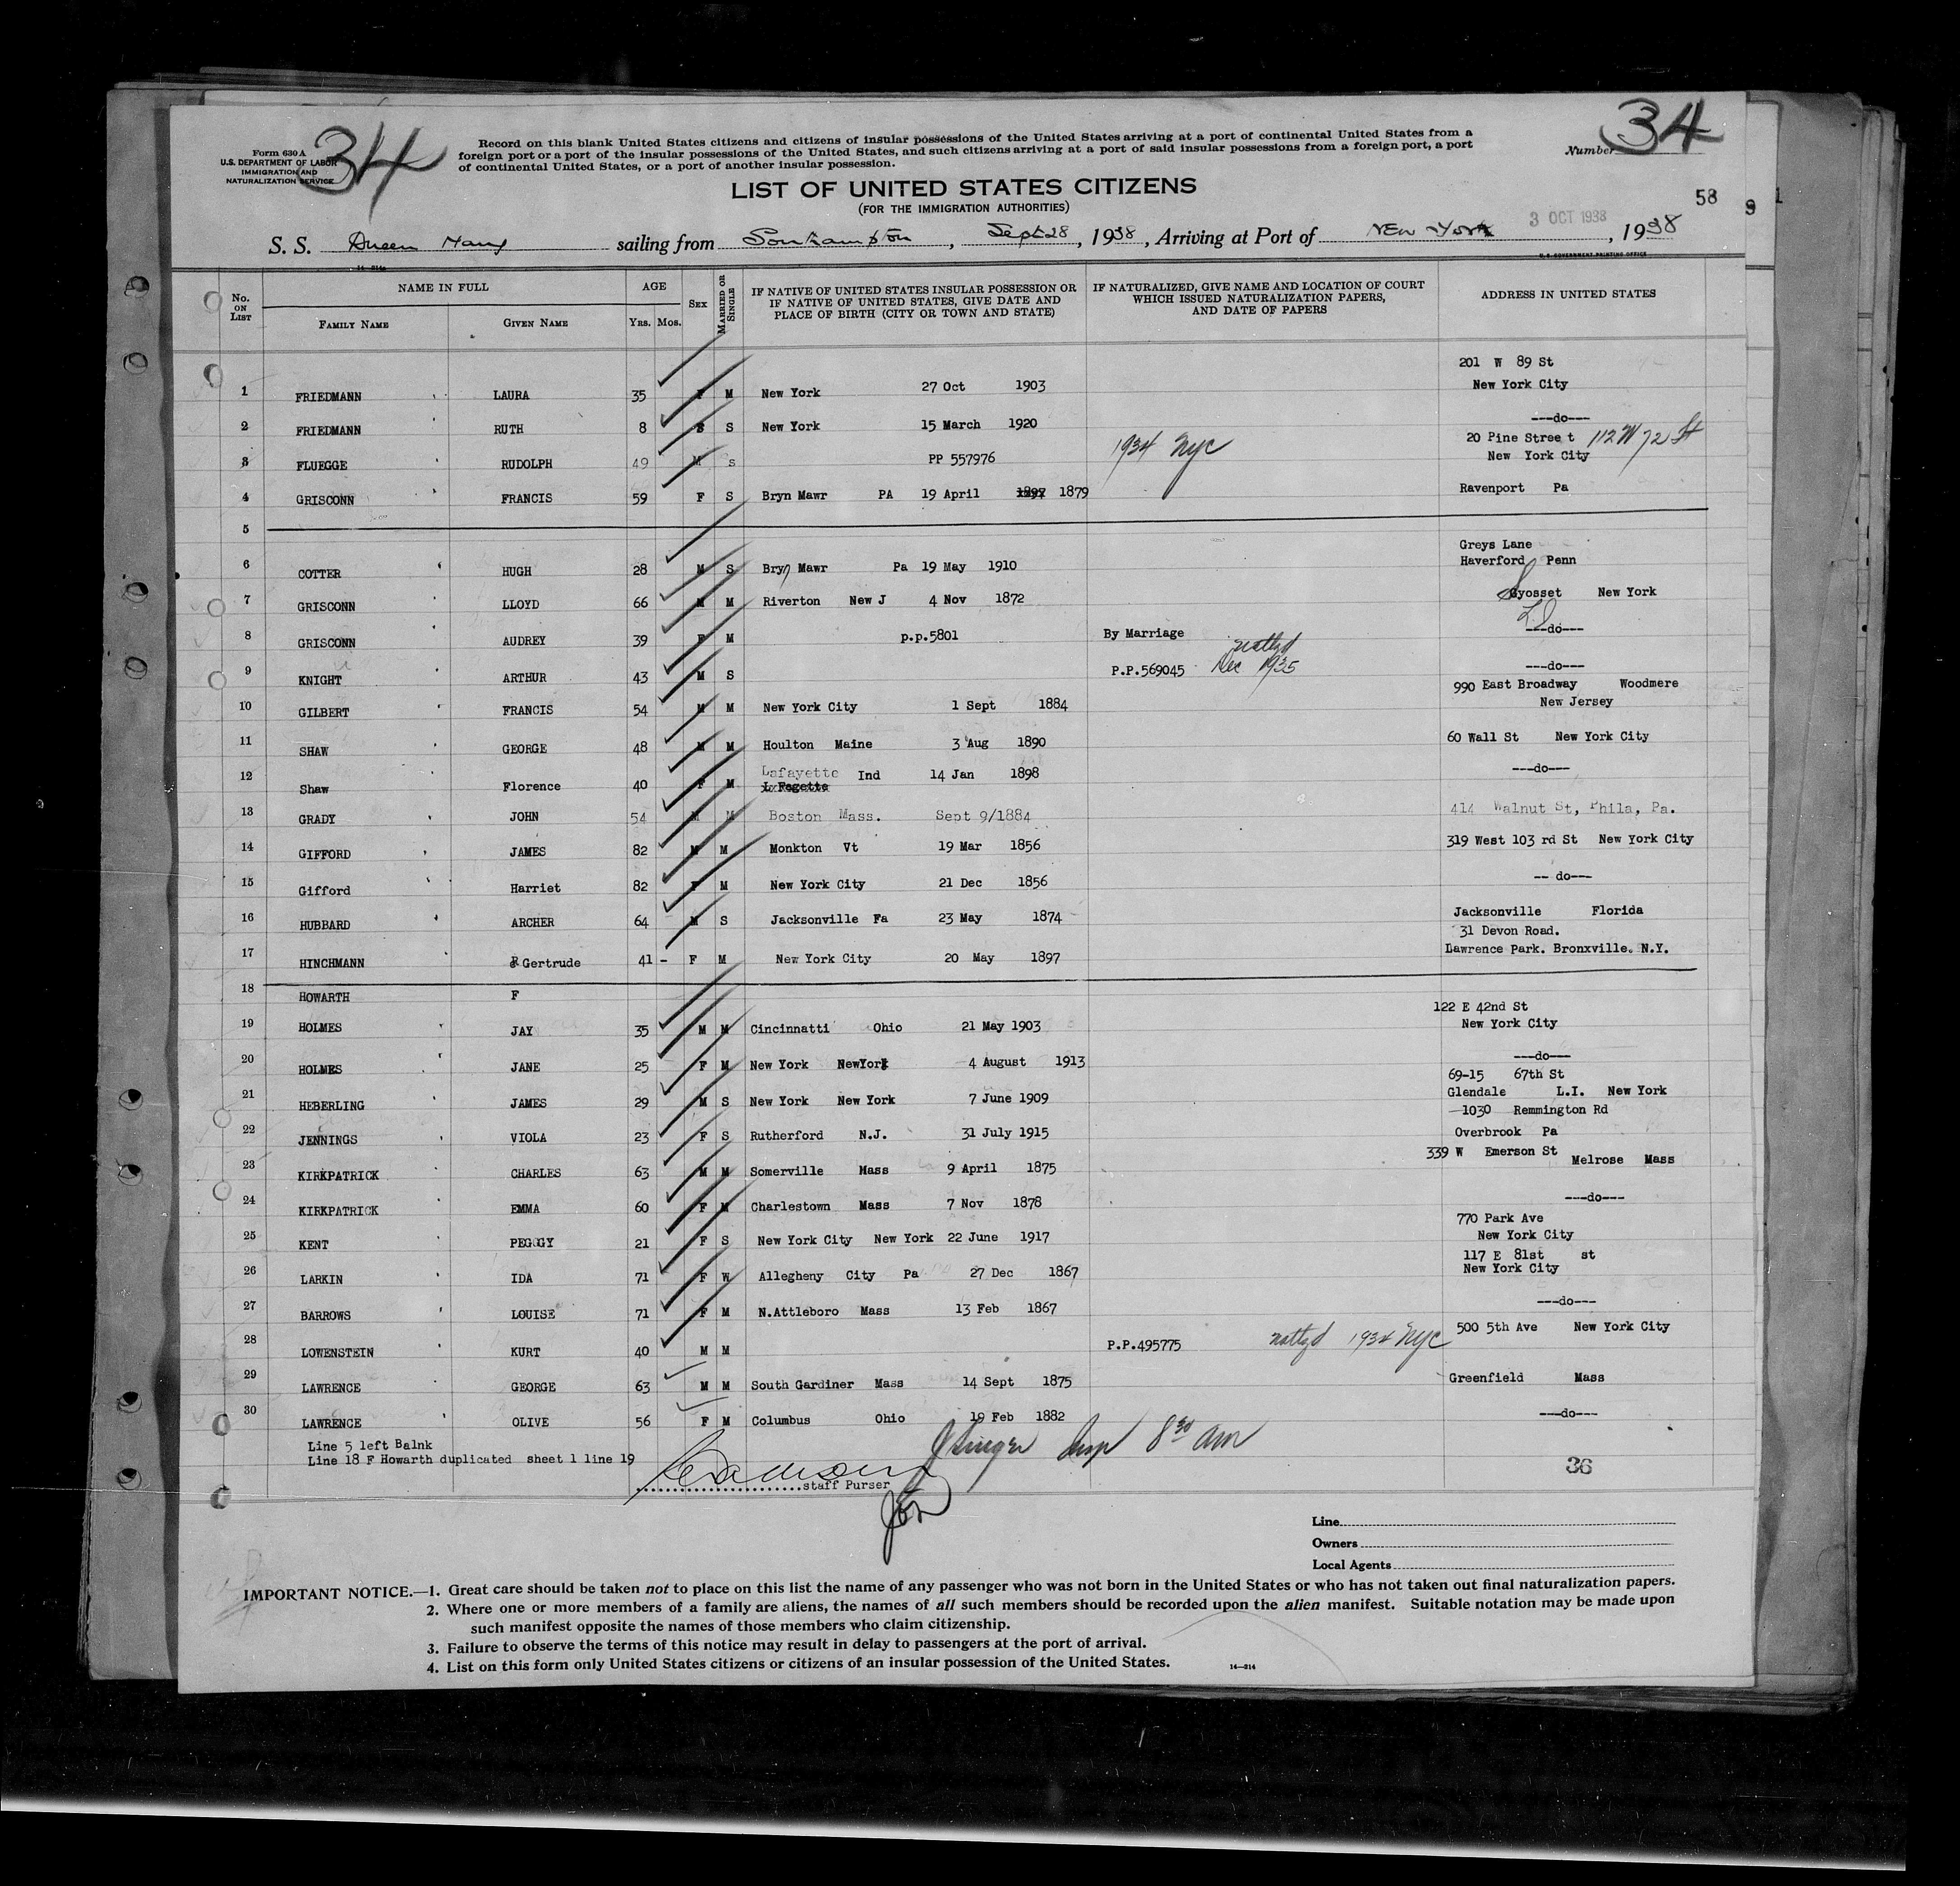 34
34
Form 630 A
U.S. DEPARTMENT OF LABOR
IMMIGRATION AND
NATURALIZATION SERVICE
Record on this blank United States citizens and citizens of insular possessions of the United States arriving at a port of continental United States from a
foreign port or a port of the insular possessions of the United States, and such citizens arriving at a port of said insular possessions from a foreign port, a port
of continental United States, or a port of another insular possession.
Number
LIST OF UNITED STATES CITIZENS
(FOR THE IMMIGRATION AUTHORITIES)
58
3 OCT 1938
S. S. Queen Mary sailing from Southampton, Sept 28, 1938, Arriving at Port of New York, 1938
U. S. GOVERNMENT PRINTING OFFICE
No. ON LIST
NAME IN FULL
FAMILY NAME
GIVEN NAME
AGE
YRS. MOS.
SEX
MARRIED OR SINGLE
IF NATIVE OF UNITED STATES INSULAR POSSESSION OR
IF NATIVE OF UNITED STATES, GIVE DATE AND
PLACE OF BIRTH (CITY OR TOWN AND STATE)
IF NATURALIZED, GIVE NAME AND LOCATION OF COURT
WHICH ISSUED NATURALIZATION PAPERS,
AND DATE OF PAPERS
ADDRESS IN UNITED STATES
201 W 89 St
1 FRIEDMANN LAURA 35 F M New York 27 Oct 1903 New York City
2 FRIEDMANN RUTH 8 S S New York 15 March 1920 ---do---
20 Pine Stree t 112 W 72 St
3 FLUEGGE RUDOLPH 49 M s PP 557976 1934 NYC New York City
4 GRISCONN FRANCIS 59 F S Bryn Mawr PA 19 April 1897 1879 Ravenport Pa
5
Greys Lane
6 COTTER HUGH 28 M S Bryn Mawr Pa 19 May 1910 Haverford Penn
7 GRISCONN LLOYD 66 M M Riverton New J 4 Nov 1872 Syosset New York
L.I.
8 GRISCONN AUDREY 39 F M p.p.5801 By Marriage ---do---
9 KNIGHT ARTHUR 43 M S P.P.569045 natlzd Dec 1935 ---do---
990 East Broadway Woodmere
10 GILBERT FRANCIS 54 M M New York City 1 Sept 1884 New Jersey
11 SHAW GEORGE 48 M M Houlton Maine 3 Aug 1890 60 Wall St New York City
12 Shaw Florence 40 F M Lafayette Ind 14 Jan 1898 ---do---
L Fagette
13 GRADY JOHN 54 M M Boston Mass. Sept 9/1884 414 Walnut St, Phila, Pa.
14 GIFFORD JAMES 82 M M Monkton Vt 19 Mar 1856 319 West 103 rd St New York City
15 Gifford Harriet 82 F M New York City 21 Dec 1856 -- do---
16 HUBBARD ARCHER 64 M S Jacksonville Fa 23 May 1874 Jacksonville Florida
31 Devon Road.
17 HINCHMANN Gertrude 41 - F M New York City 20 May 1897 Lawrence Park. Bronxville. N.Y.
18 HOWARTH F
122 E 42nd St
19 HOLMES JAY 35 M M Cincinnatti Ohio 21 May 1903 New York City
20 HOLMES JANE 25 F M New York NewYork 4 August 1913 ---do---
69-15 67th St
21 HEBERLING JAMES 29 M S New York New York 7 June 1909 Glendale L.I. New York
1030 Remmington Rd
22 JENNINGS VIOLA 23 F S Rutherford N.J. 31 July 1915 Overbrook Pa
23 KIRKPATRICK CHARLES 63 M M Somerville Mass 9 April 1875 339 W Emerson St Melrose Mass
24 KIRKPATRICK EMMA 60 F M Charlestown Mass 7 Nov 1878 ---do---
770 Park Ave
25 KENT PEGGY 21 F S New York City New York 22 June 1917 New York City
117 E 81st st
26 LARKIN IDA 71 F W Allegheny City Pa 27 Dec 1867 New York City
27 BARROWS LOUISE 71 F M N.Attleboro Mass 13 Feb 1867 ---do---
28 LOWENSTEIN KURT 40 M M P.P.495775 natlzd 1934 NYC 500 5th Ave New York City
29 LAWRENCE GEORGE 63 M M South Gardiner Mass 14 Sept 1875 Greenfield Mass
30 LAWRENCE OLIVE 56 F M Columbus Ohio 19 Feb 1882 ---do---
Line 5 left Balnk
Line 18 F Howarth duplicated sheet 1 line 19
Insp 8 30 AM
staff Purser
36
Line
Owners
Local Agents
IMPORTANT NOTICE.—1. Great care should be taken not to place on this list the name of any passenger who was not born in the United States or who has not taken out final naturalization papers.
2. Where one or more members of a family are aliens, the names of all such members should be recorded upon the alien manifest. Suitable notation may be made upon
such manifest opposite the names of those members who claim citizenship.
3. Failure to observe the terms of this notice may result in delay to passengers at the port of arrival.
4. List on this form only United States citizens or citizens of an insular possession of the United States.
14—214